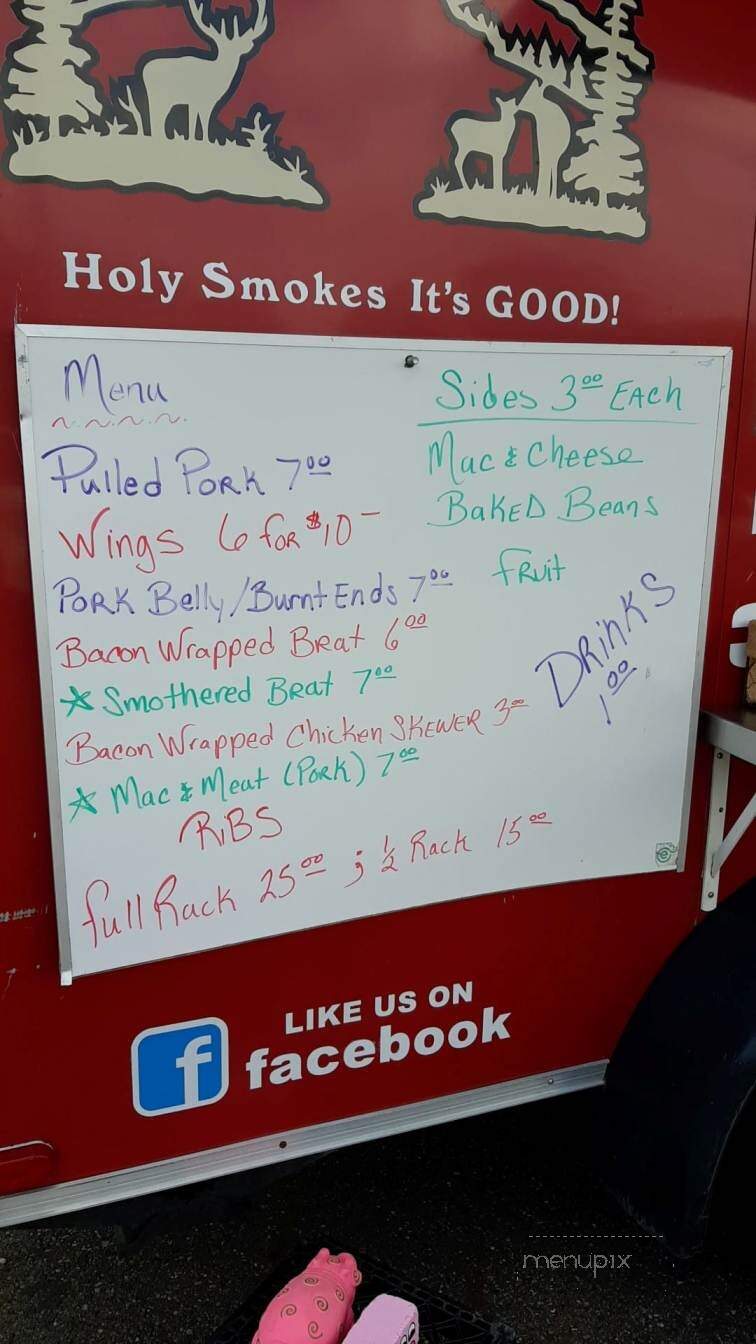 Holy Smokes It's GOOD!
Menu
Pulled Pork 7⁰⁰
Wings 6 for $10-
Pork Belly/Burnt Ends 7⁰⁰
Bacon Wrapped Brat 6⁰⁰
☆ Smothered Brat 7⁰⁰
Bacon Wrapped Chicken SKEWER 3⁰⁰
☆ Mac & Meat (Pork) 7⁰⁰
RiBS
full Rack 25⁰⁰ ; ½ Rack 15⁰⁰
Sides 3⁰⁰ EAch
Mac & Cheese
BaKED Beans
fRuit
DRinKS
1⁰⁰
LIKE US ON
f facebook
menupix